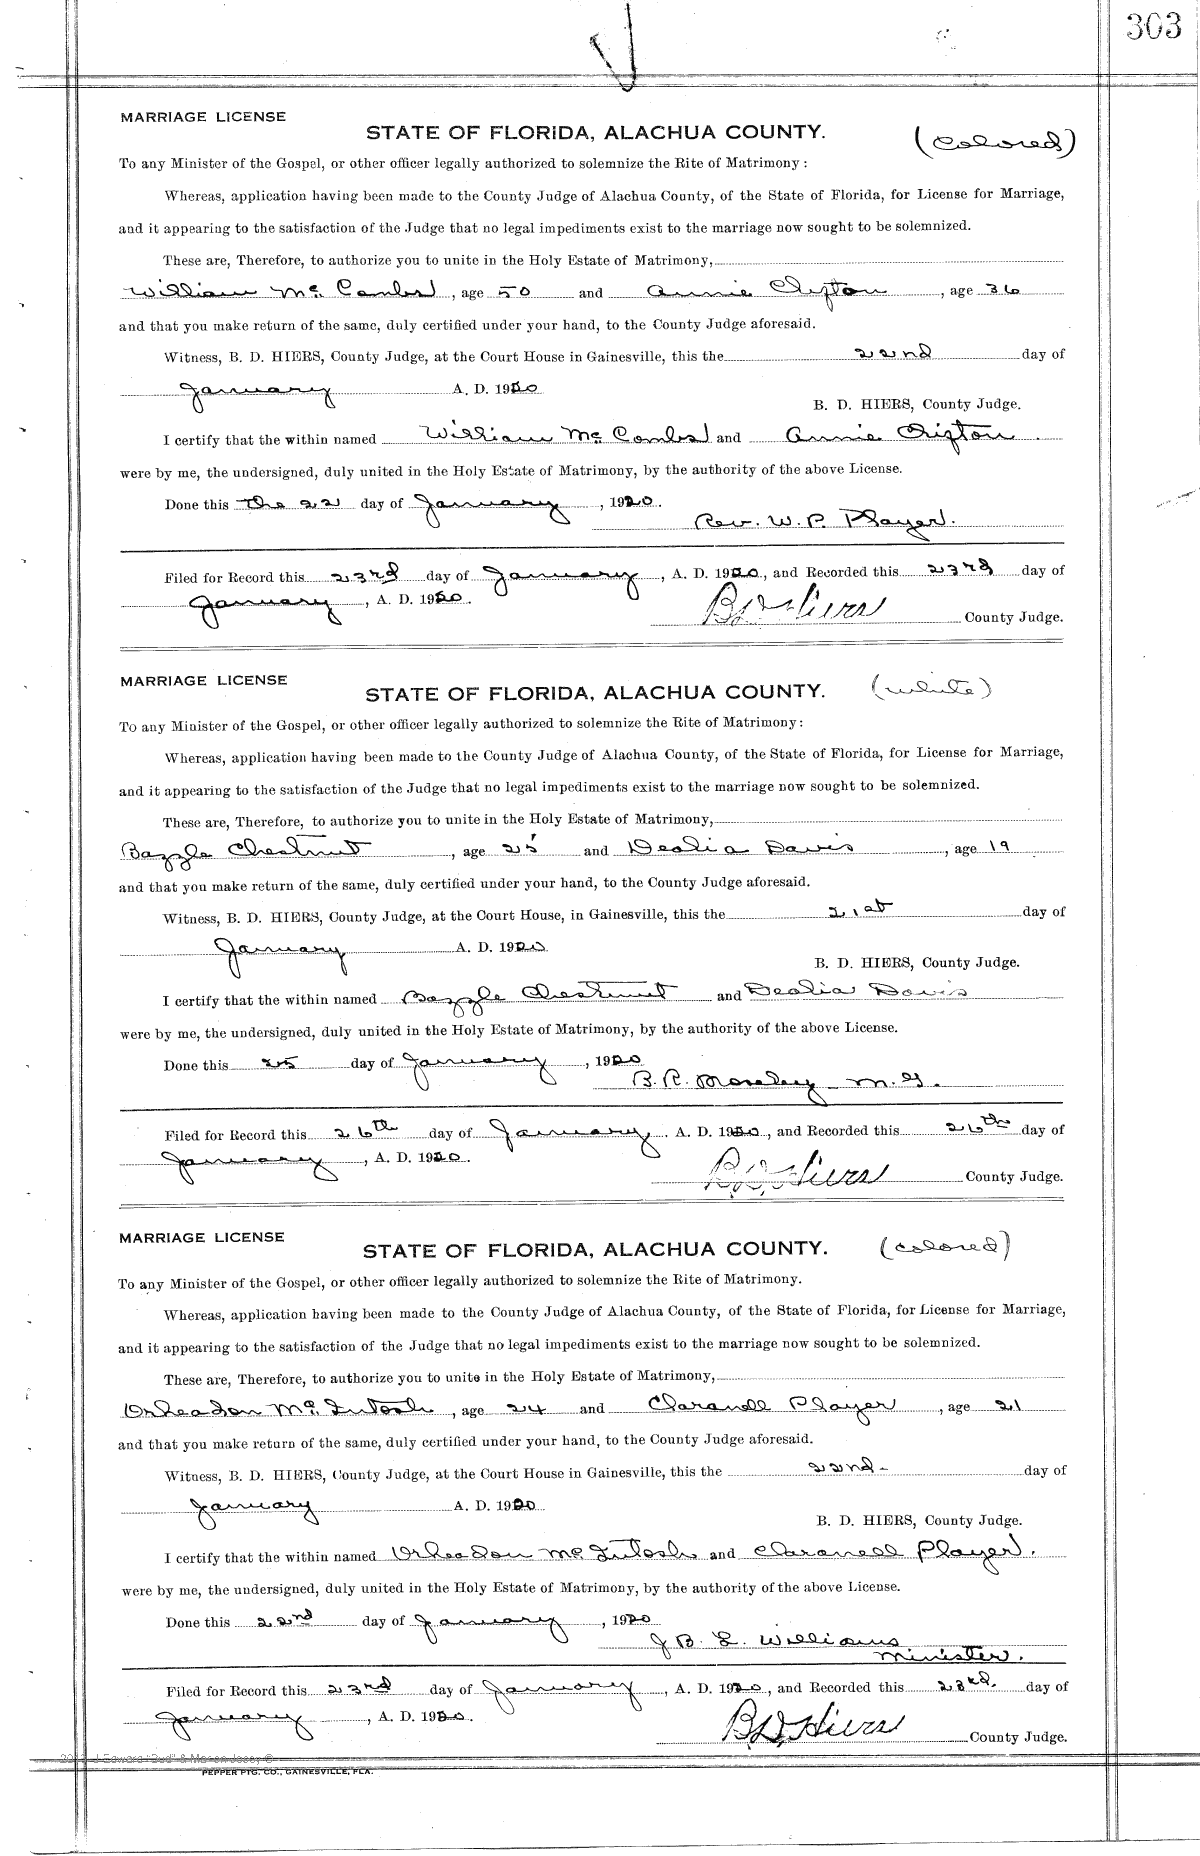 303
MARRIAGE LICENSE
STATE OF FLORIDA, ALACHUA COUNTY. (colored)
To any Minister of the Gospel, or other officer legally authorized to solemnize the Rite of Matrimony:
Whereas, application having been made to the County Judge of Alachua County, of the State of Florida, for License for Marriage,
and it appearing to the satisfaction of the Judge that no legal impediments exist to the marriage now sought to be solemnized.
These are, Therefore, to authorize you to unite in the Holy Estate of Matrimony,
William Mc Combs, age 50 and Annie Clifton, age 36
and that you make return of the same, duly certified under your hand, to the County Judge aforesaid.
Witness, B. D. HIERS, County Judge, at the Court House in Gainesville, this the 22nd day of
January A. D. 1920
B. D. HIERS, County Judge.
I certify that the within named William Mc Combs and Annie Clifton.
were by me, the undersigned, duly united in the Holy Estate of Matrimony, by the authority of the above License.
Done this the 22 day of January, 1920.
Rev. W. P. Player.
Filed for Record this 23rd day of January, A. D. 1920., and Recorded this 23rd day of
January, A. D. 1920.
B D Hiers County Judge.
MARRIAGE LICENSE
STATE OF FLORIDA, ALACHUA COUNTY. (white)
To any Minister of the Gospel, or other officer legally authorized to solemnize the Rite of Matrimony:
Whereas, application having been made to the County Judge of Alachua County, of the State of Florida, for License for Marriage,
and it appearing to the satisfaction of the Judge that no legal impediments exist to the marriage now sought to be solemnized.
These are, Therefore, to authorize you to unite in the Holy Estate of Matrimony,
Bazzle Chestnut, age 25 and Dealia Davis, age 19
and that you make return of the same, duly certified under your hand, to the County Judge aforesaid.
Witness, B. D. HIERS, County Judge, at the Court House, in Gainesville, this the 21st day of
January A. D. 1920
B. D. HIERS, County Judge.
I certify that the within named Bazzle Chestnut and Dealia Davis
were by me, the undersigned, duly united in the Holy Estate of Matrimony, by the authority of the above License.
Done this 25 day of January, 1920
B. R. Moseley M. G.
Filed for Record this 26th day of January. A. D. 1920., and Recorded this 26th day of
January, A. D. 1920.
B D Hiers County Judge.
MARRIAGE LICENSE
STATE OF FLORIDA, ALACHUA COUNTY. (colored)
To any Minister of the Gospel, or other officer legally authorized to solemnize the Rite of Matrimony.
Whereas, application having been made to the County Judge of Alachua County, of the State of Florida, for License for Marriage,
and it appearing to the satisfaction of the Judge that no legal impediments exist to the marriage now sought to be solemnized.
These are, Therefore, to authorize you to unite in the Holy Estate of Matrimony,
Mc Intosh, age 24 and Claranell Player, age 21
and that you make return of the same, duly certified under your hand, to the County Judge aforesaid.
Witness, B. D. HIERS, County Judge, at the Court House in Gainesville, this the 22nd- day of
January A. D. 1920
B. D. HIERS, County Judge.
I certify that the within named Mc Intosh and Claranell Player.
were by me, the undersigned, duly united in the Holy Estate of Matrimony, by the authority of the above License.
Done this 22nd day of January, 1920
J B. L. Williams
Minister.
Filed for Record this 23rd day of January, A. D. 1920, and Recorded this 23rd. day of
January, A. D. 1920.
B D Hiers County Judge.
PEPPER PTG. CO., GAINESVILLE, FLA.